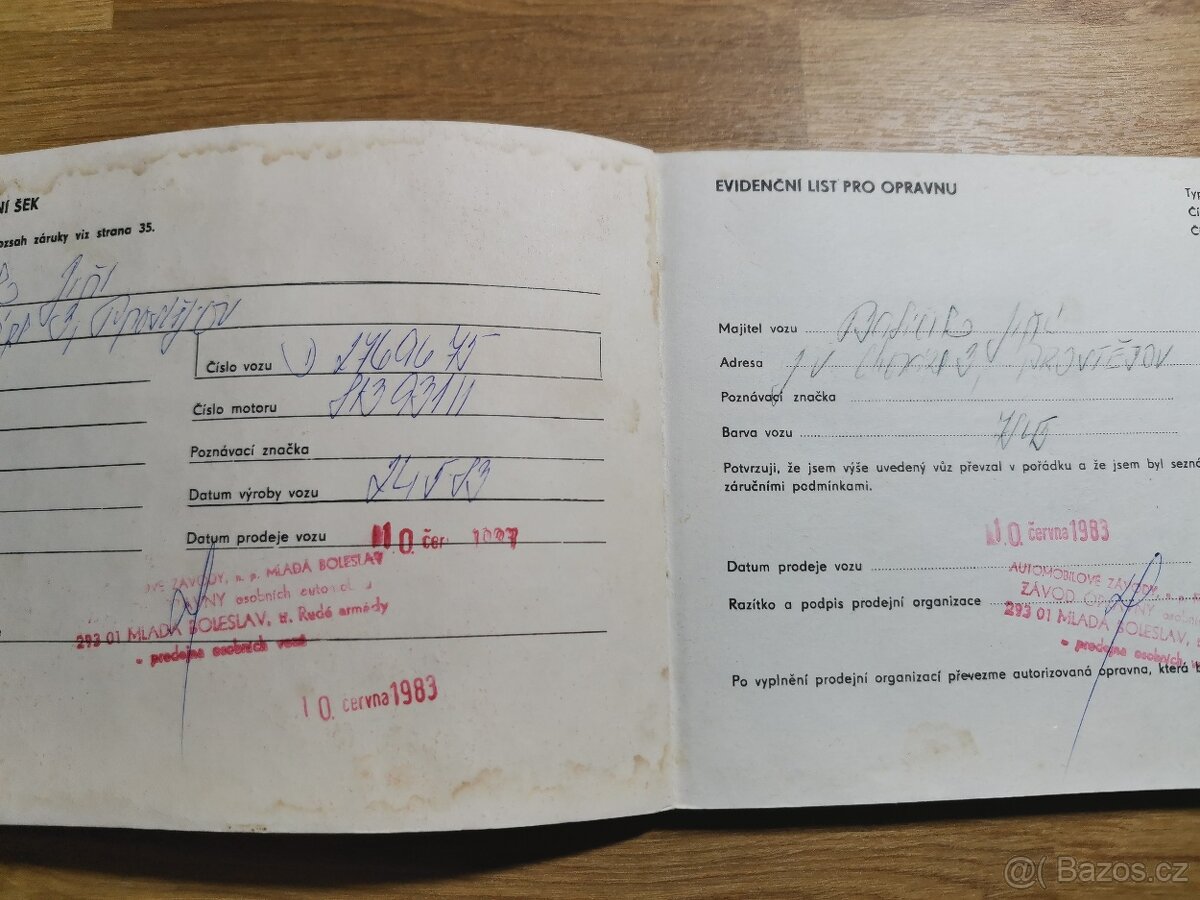 NÍ ŠEK
ozsah záruky viz strana 35.
Jiří
3, Prostějov
Číslo vozu
Číslo motoru
Poznávací značka
Datum výroby vozu 24 5 83
Datum prodeje vozu 10. čer
OVÉ ZÁVODY, n. p. MLADÁ BOLESLAV
osobních
293 01 MLADÁ BOLESLAV, tř. Rudé armády
- prodejna osobních vozů
10. června 1983
EVIDENČNÍ LIST PRO OPRAVNU
Typ
Čí
Č
Majitel vozu Jiří
Adresa 3, PROSTĚJOV
Poznávací značka
Barva vozu
Potvrzuji, že jsem výše uvedený vůz převzal v pořádku a že jsem byl sezná
záručními podmínkami.
10. června 1983
Datum prodeje vozu
AUTOMOBILOVÉ ZÁVODY, n. p.
Razítko a podpis prodejní organizace
ZÁVOD OPRAVNY osobní
293 01 MLADÁ BOLESLAV,
- prodejna osobních
Po vyplnění prodejní organizací převezme autorizovaná opravna, která
@( Bazos.cz